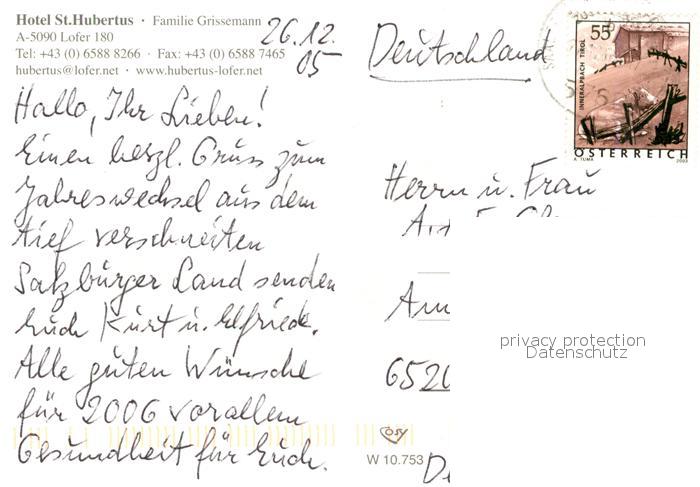 Hotel St.Hubertus · Familie Grissemann
A-5090 Lofer 180
Tel: +43 (0) 6588 8266 · Fax: +43 (0) 6588 7465
hubertus@lofer.net · www.hubertus-lofer.net
26.12.
05
Hallo, Ihr Lieben!
Einen herzl. Gruss zum
Jahreswechsel aus dem
tief verschneiten
Salzburger Land senden
Euch Kurt u. Elfriede.
Alle guten Wünsche
für 2006 vorallem
Gesundheit für Euch.
Deutschland
55
INNERALPBACH TIROL
ÖSTERREICH
A. TUMA
Herrn u. Frau
Am
6520
privacy protection
Datenschutz
W 10.753